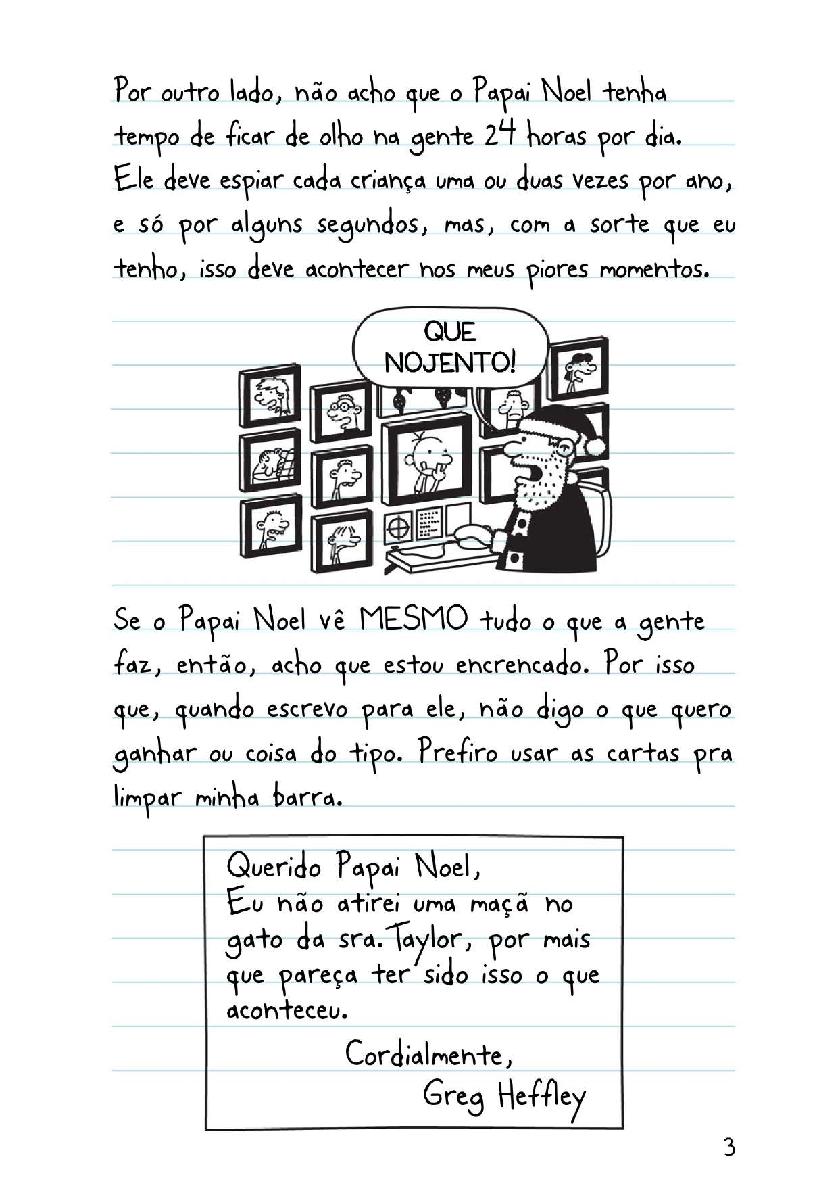 Por outro lado, não acho que o Papai Noel tenha
tempo de ficar de olho na gente 24 horas por dia.
Ele deve espiar cada criança uma ou duas vezes por ano,
e só por alguns segundos, mas, com a sorte que eu
tenho, isso deve acontecer nos meus piores momentos.
QUE
NOJENTO!
Se o Papai Noel vê MESMO tudo o que a gente
faz, então, acho que estou encrencado. Por isso
que, quando escrevo para ele, não digo o que quero
ganhar ou coisa do tipo. Prefiro usar as cartas pra
limpar minha barra.
Querido Papai Noel,
Eu não atirei uma maçã no
gato da sra. Taylor, por mais
que pareça ter sido isso o que
aconteceu.
Cordialmente,
Greg Heffley
3